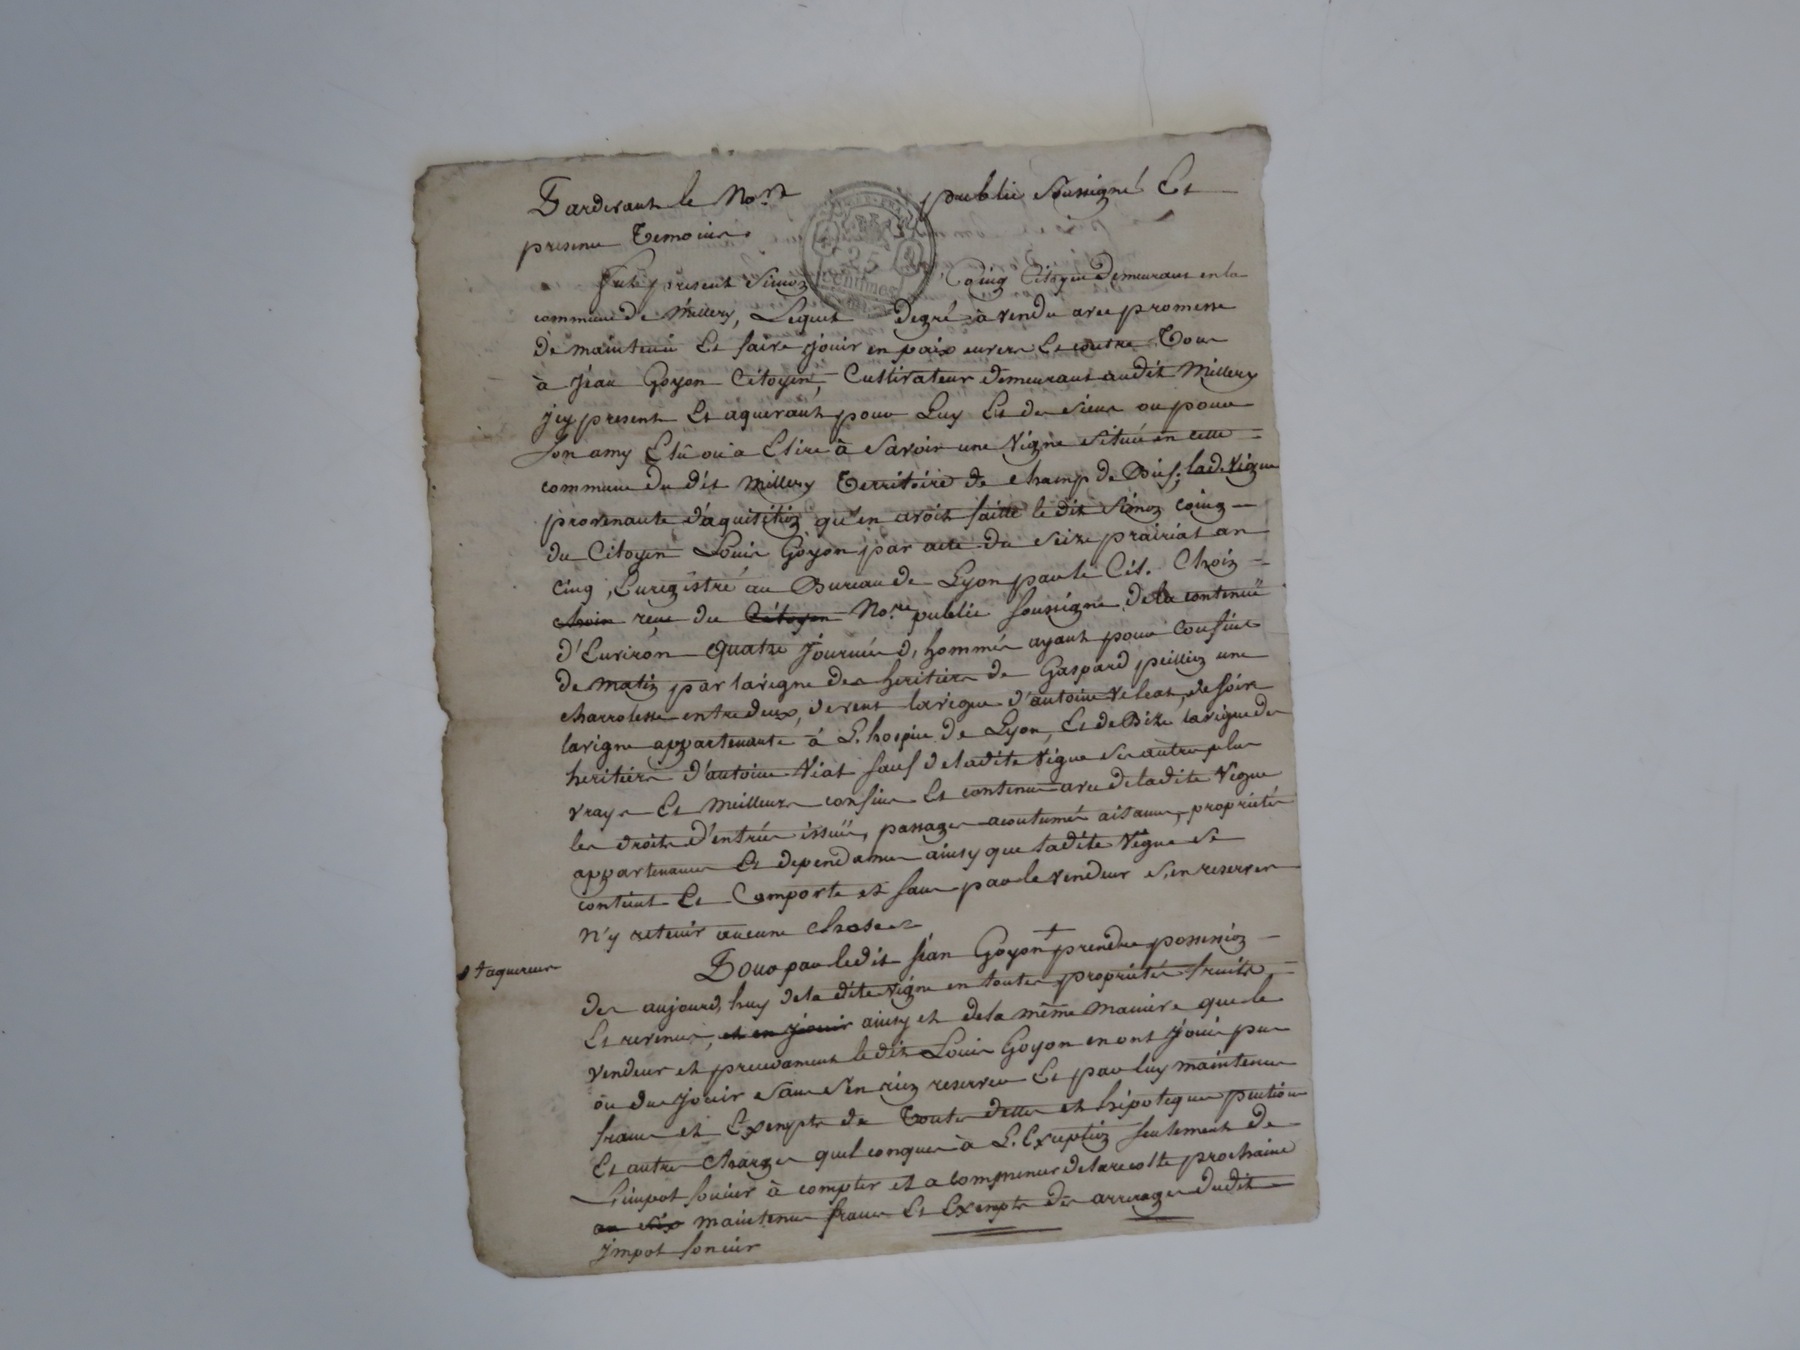 Pardevant le No.re public Soussigné Et
presence Temoins
25
Centimes
Fut present Simon Coing Citoyen Demeurant en la
commune De Millery, Lequel degré à vendu avec promesse
De maintenir Et faire jouir en paix envers Et contre Tous
à Jean Goyon Citoyen, Cultivateur demeurant audit Millery
jcy present Et aquerant pour Luy Et des siens ou pour
son amy Elû ou a Elire à Savoir une Vigne située en cette
commune du dit Millery Territoire de champ de Buis; lad. Vigne
provenante d'aquisition qu'en avoit faitte le dit Simon Coing
du Citoyen Louis Goyon par acte du Seize prairial an
cinq, Enregistré au Bureau de Lyon par le Cit. Choin
choin reçu du Citoyen No.re public soussigné, de la contenuë
d'Environ quatre journées d'hommes ayant pour confins
de matin par la vigne des heritiers de Gaspard peillion une
charrotesse entre deux, de vent la vigne d'antoine , de soir
la vigne appartenante à L'hospice de Lyon, Et de Bize la vigne des
heritiers d'antoine Viat sauf de la dite Vigne ses autres plus
vrays Et meilleurs confins Et contenue avec de la dite Vigne
les droits d'entrées issuës, passages acoutumés aisances, propriétés
appartenances Et dependances ainsy que la dite Vigne se
contient Et Comporte et sans par le vendeur s'en reserver
n'y retenir aucune choses
Pour par le dit jean Goyon + prendre possession
+ aquereur
des aujourd'huy de la dite Vigne en toutes propriétés fruits,
Et revenus, et en jouir ainsy et de la même maniere que le
vendeur et precedament le dit Louis Goyon en ont joui pu
ou du jouir sans s'en rien reserver Et par luy maintenue
franche et Exempte de Toutes dettes et hipoteques pentions
Et autres charges quelconques à L'Exeption seulement de
L'impot foncier à compter et a commencer de la recolte prochaine
an six maintenue franche Et Exempte des arrerages du dit
jmpot foncier